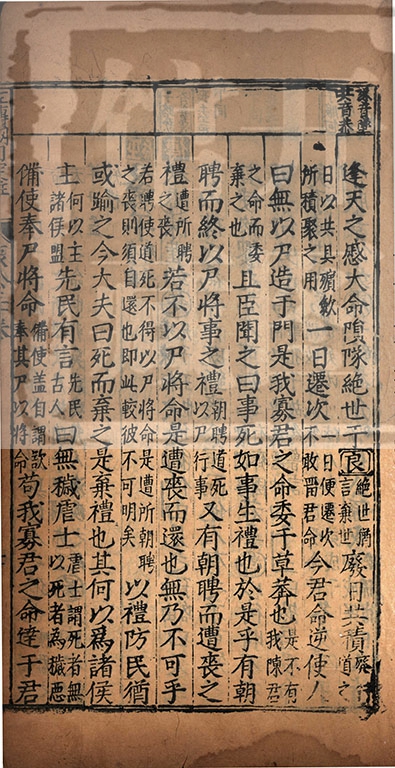 逢天之慼大命隕隊絶世于良絶世猶言棄世廢日共積廢行道之
日以共具殯斂所積聚之用一日遷次一日便遷次不敢留君命今君命逆使人
曰無以尸造于門是我寡君之命委于草莽也是不有我陳君
之命而委棄之也且臣聞之曰事死如事生禮也於是乎有朝
聘而終以尸將事之禮朝聘道死以尸行事又有朝聘而遭喪之
禮遭所聘之喪若不以尸將命是遭喪而還也無乃不可乎
若聘使道死不得以尸將命是遭所朝聘之喪則須自還也即此較彼不可明矣以禮防民猶
或踰之今大夫曰死而棄之是棄禮也其何以爲諸侯
主何以主諸侯盟先民有言先民古人曰無穢虐士虐士謂死者無以死者爲穢惡
備使奉尸將命備使盖自謂歟奉其尸以將命苟我寡君之命逹于君